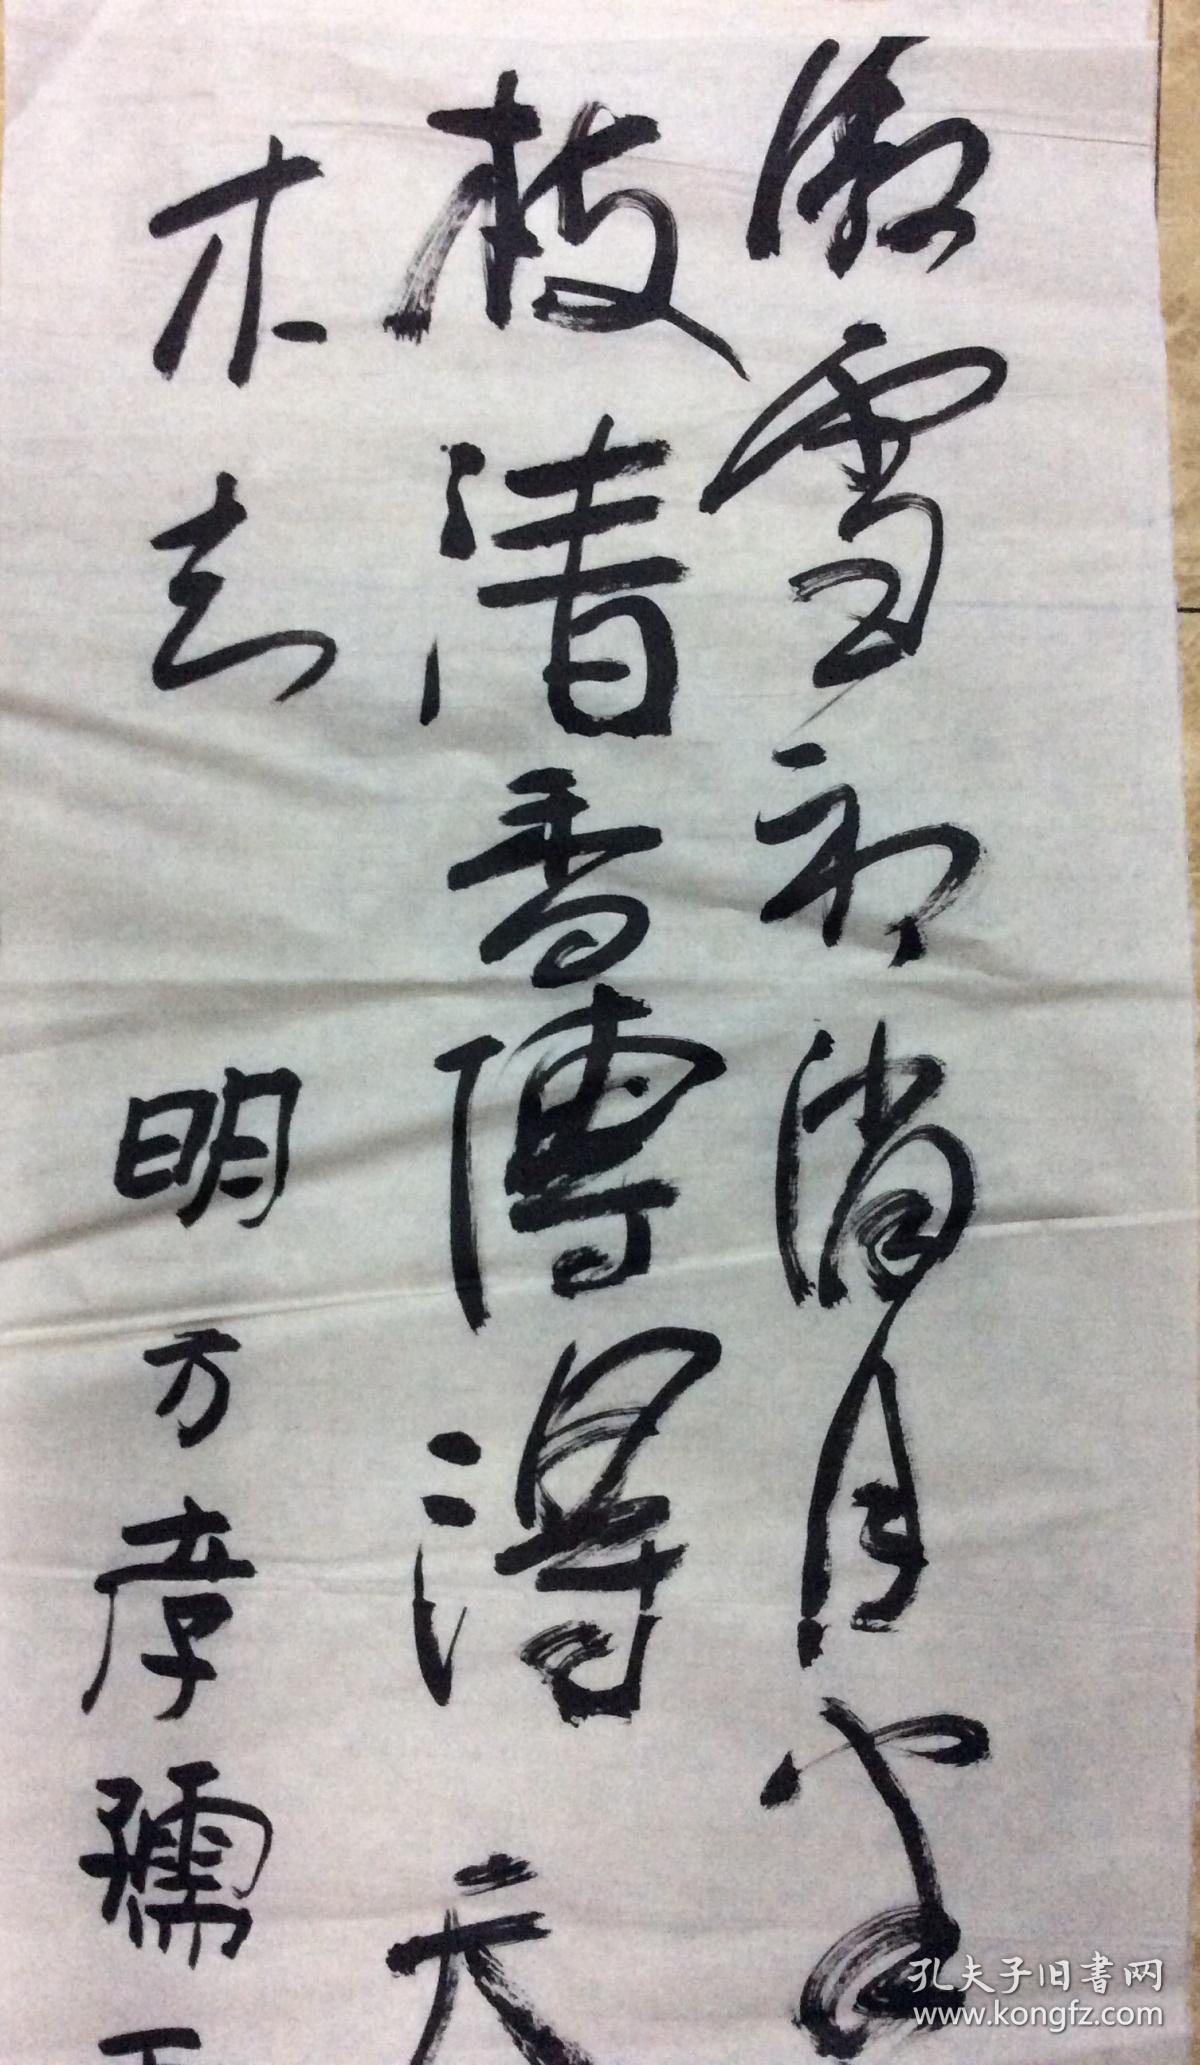 微雪初消月半
枝清香傳得天
木知
明方孝孺
孔夫子旧書网
www.kongfz.com